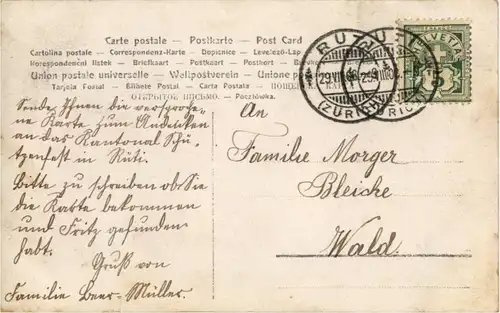 Carte postale - Postkarte - Post Card
Cartolina postale - Correspondenz-Karte - Dopisnice - Levelező-Lap
Korespondenční listek - Briefkaart - Postkaart - Postkort - Brevkort
Union postale universelle - Weltpostverein - Unione postale
Tarjeta Postal - Bilhete Postal - Carta Postala
ОТКРЫТОЕ ПИСЬМО. - Pocztówka.
RUTI
29.VIII.06
(ZÜRICH)
HELVETIA
5
Sende Ihnen die versproche-
ne Karte zum Andenken
an das Kantonal Schü-
tzenfest in Rüti.
Bitte zu schreiben ob Sie
die Karte bekommen
und Fritz gefunden
habt.
Gruß von
Familie Beer-Müller.
An
Familie Morger
Bleiche
Wald.